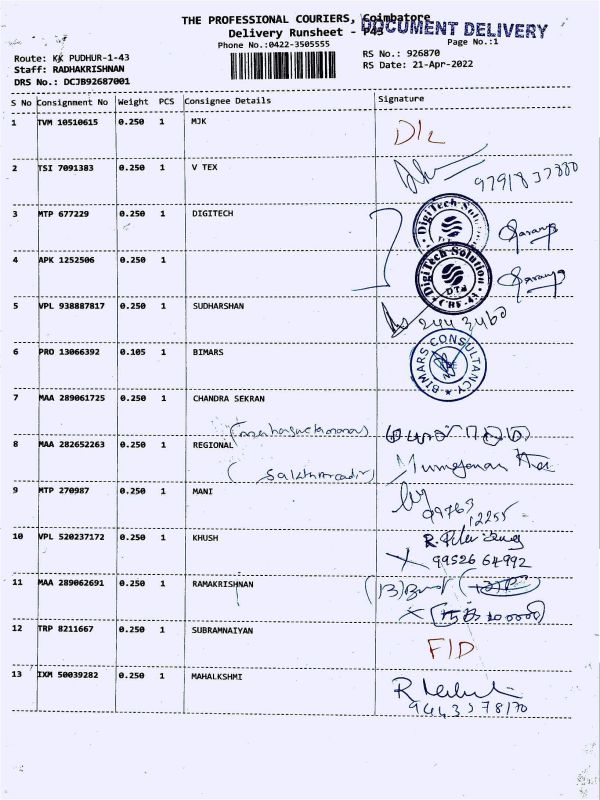 THE PROFESSIONAL COURIERS, Coimbatore
DOCUMENT DELIVERY
Delivery Runsheet - P43
Phone No.:0422-3505555
Page No.:1
Route: KK PUDHUR-1-43
RS No.: 926870
Staff: RADHAKRISHNAN
RS Date: 21-Apr-2022
DRS No.: DCJB92687001
S No Consignment No Weight PCS Consignee Details Signature
1 TVM 10510615 0.250 1 MJK
D/L
2 TSI 7091383 0.250 1 V TEX
9791837880
3 MTP 677229 0.250 1 DIGITECH
DigiTech Solution
4 APK 1252506 0.250 1
DigiTech Solution
DTS
CBE-43
5 VPL 938887817 0.250 1 SUDHARSHAN
244 3460
6 PRO 13066392 0.105 1 BIMARS
BIMARS CONSULTANCY
7 MAA 289061725 0.250 1 CHANDRA SEKRAN
8 MAA 282652263 0.250 1 REGIONAL
9 MTP 270987 0.250 1 MANI
99763
12255
10 VPL 520237172 0.250 1 KHUSH
99526 64992
11 MAA 289062691 0.250 1 RAMAKRISHNAN
12 TRP 8211667 0.250 1 SUBRAMNAIYAN
F/D
13 IXM 50039282 0.250 1 MAHALKSHMI
9443578170